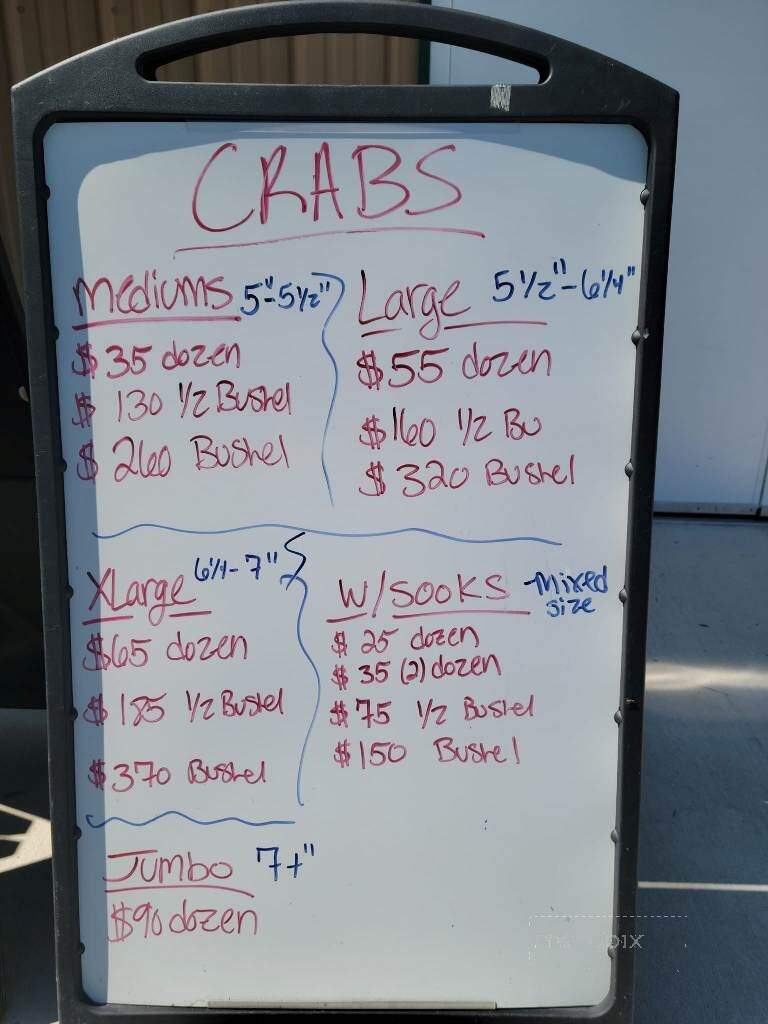 CRABS
Mediums 5"-5 1/2"
$35 dozen
$130 1/2 Bushel
$260 Bushel
Large 5 1/2"-6 1/4"
$55 dozen
$160 1/2 Bu
$320 Bushel
XLarge 6 1/4-7"
$65 dozen
$185 1/2 Bushel
$370 Bushel
W/SOOKS Mixed size
$25 dozen
$35 (2) dozen
$75 1/2 Bushel
$150 Bushel
Jumbo 7+"
$90 dozen